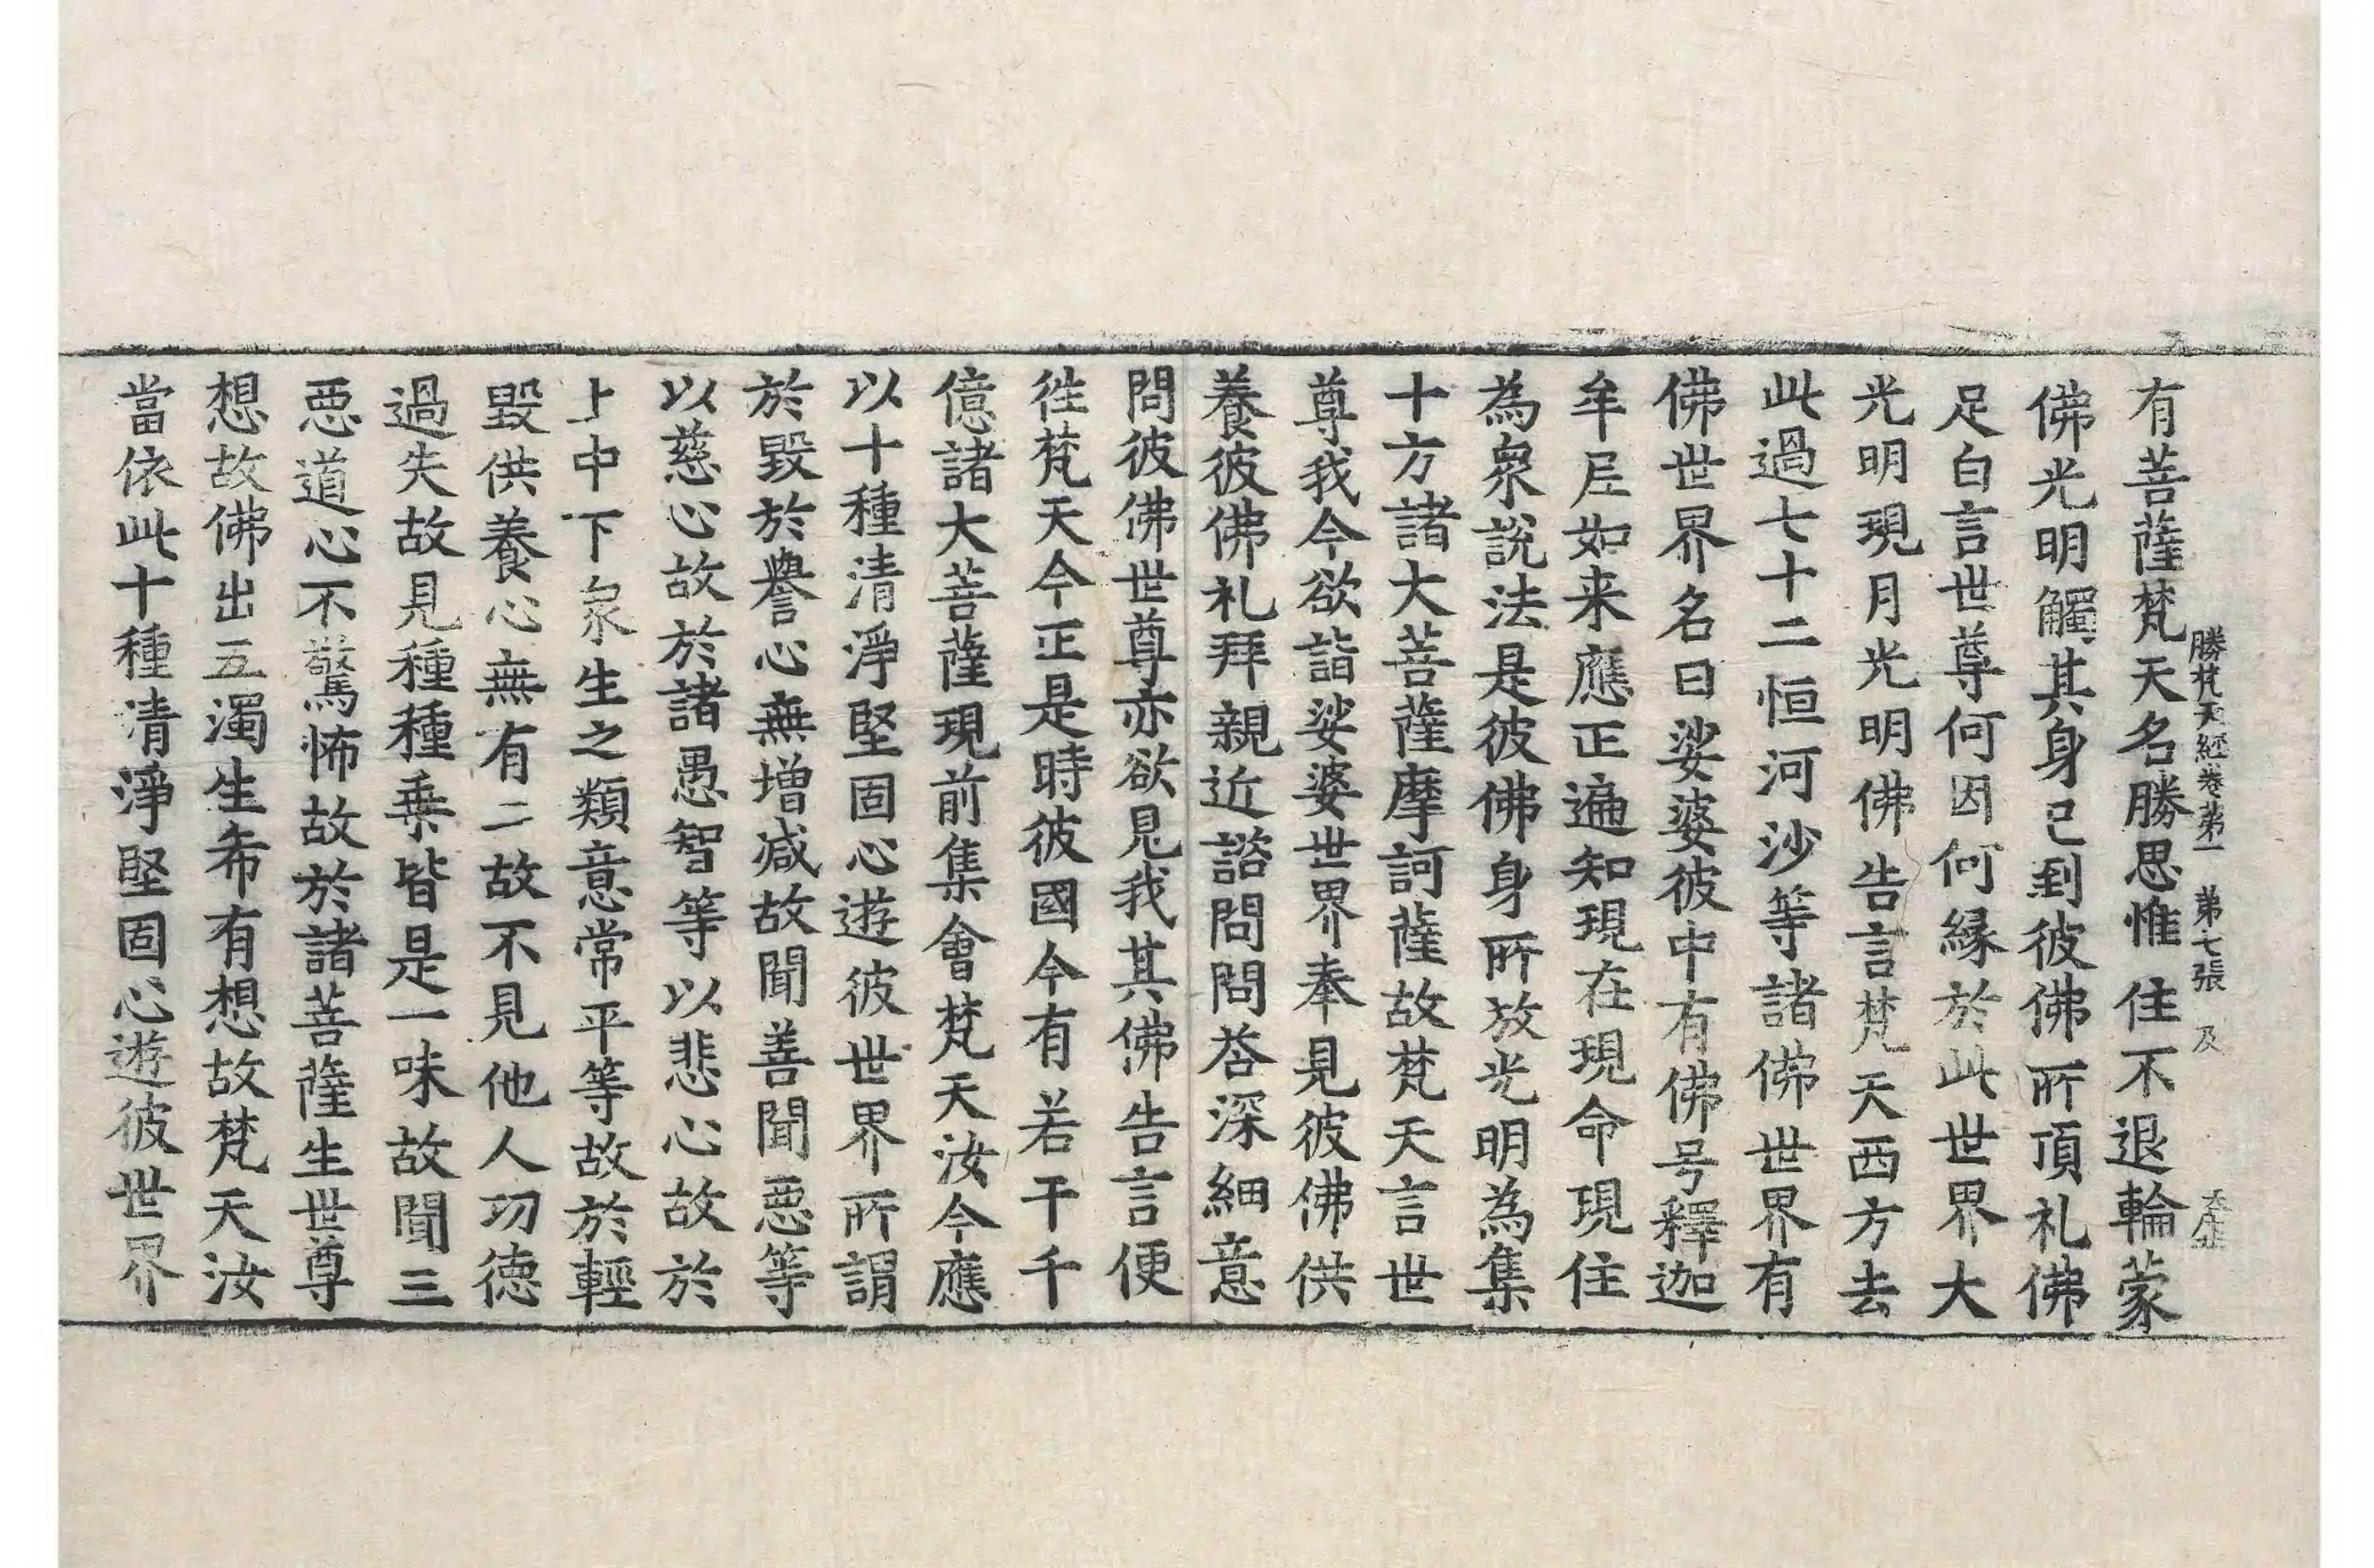 勝梵天経卷苐一　苐七張　及
有菩薩梵天名勝思惟住不退輪蒙
佛光明觸其身已到彼佛所頂礼佛
足白言世尊何因何縁於此世界大
光明現月光明佛告言梵天西方去
此過七十二恒河沙等諸佛世界有
佛世界名曰娑婆彼中有佛号釋迦
牟尼如来應正遍知現在現命現住
為衆說法是彼佛身所放光明為集
十方諸大菩薩摩訶薩故梵天言世
尊我今欲詣娑婆世界奉見彼佛供
養彼佛礼拜親近諮問問荅深細意
問彼佛世尊亦欲見我其佛告言便
徃梵天今正是時彼國今有若干千
億諸大菩薩現前集會梵天汝今應
以十種清淨堅固心遊彼世界所謂
於毀於譽心無增减故聞善聞惡等
以慈心故於諸愚智等以悲心故於
上中下衆生之類意常平等故於輕
毀供養心無有二故不見他人功德
過失故見種種乗皆是一味故聞三
惡道心不驚怖故於諸菩薩生世尊
想故佛出五濁生希有想故梵天汝
當依此十種清淨堅固心遊彼世界